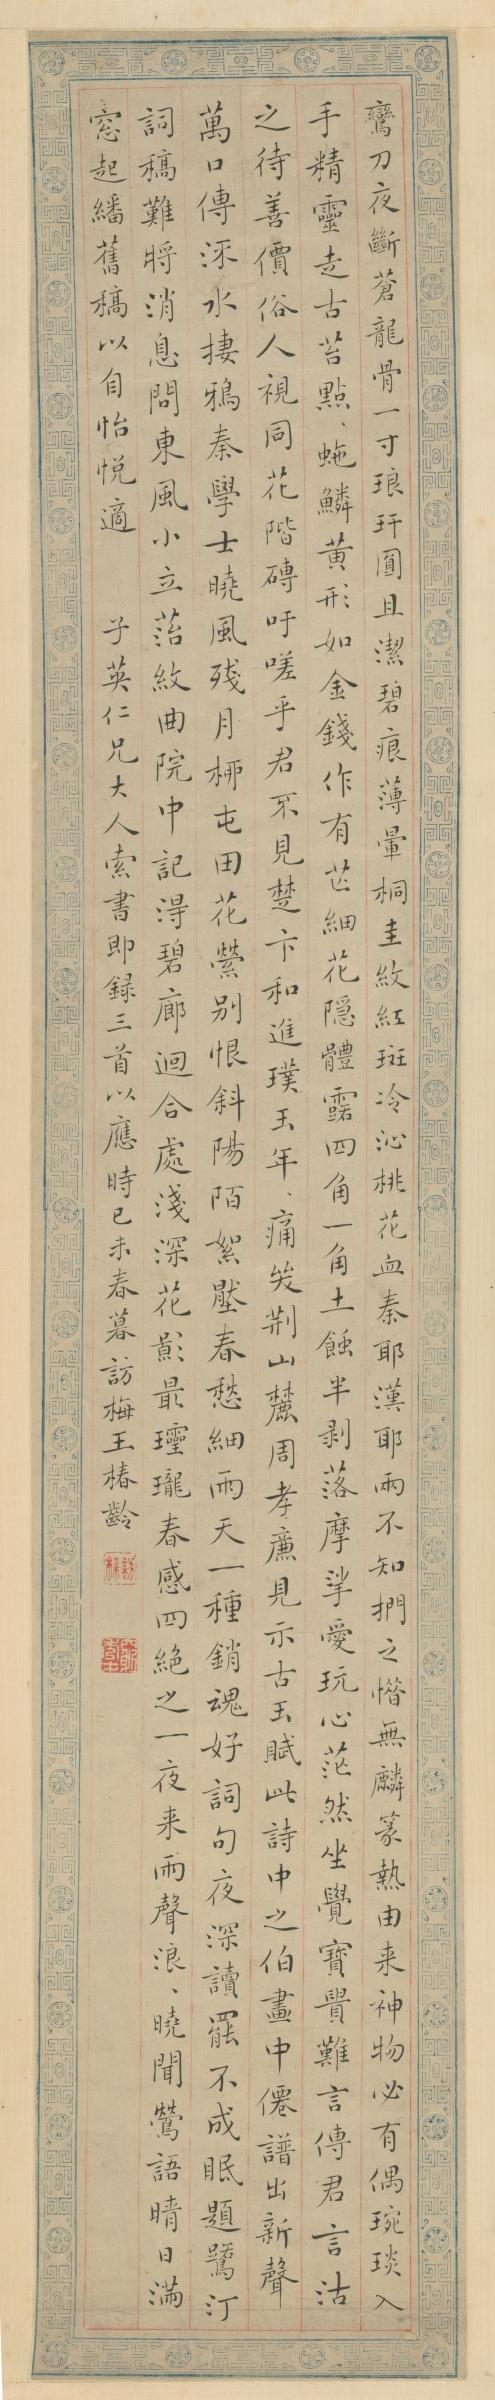 鸞刀夜斷蒼龍骨一寸琅玕圓且潔碧痕薄暈桐圭紋紅斑冷沁桃花血秦耶漢耶兩不知捫之惜無麟篆熱由来神物必有偶琬琰入
手精靈走古苔點、蛇鱗黄形如金錢作有芒細花隠體露四角一角土蝕半剥落摩挲愛玩心茫然坐覺寶貴難言傳君言沽
之待善價俗人視同花階磚吁嗟乎君不見楚卞和進璞玉年、痛哭荆山麓周孝廉見示古玉賦此詩中之伯畫中僊譜出新聲
萬口傳流水捿鴉秦學士曉風残月桺屯田花縈别恨斜陽陌絮壓春愁細雨天一種銷魂好詞句夜深讀罷不成眠題鷺汀
詞稿難將消息問東風小立苔紋曲院中記得碧廊迴合處淺深花影最瓏春感四絶之一夜来雨聲浪、曉聞鶯語晴日滿
窓起繙舊稿以自怡悦適
子英仁兄大人索書即録三首以應時己未春暮訪梅王椿齡